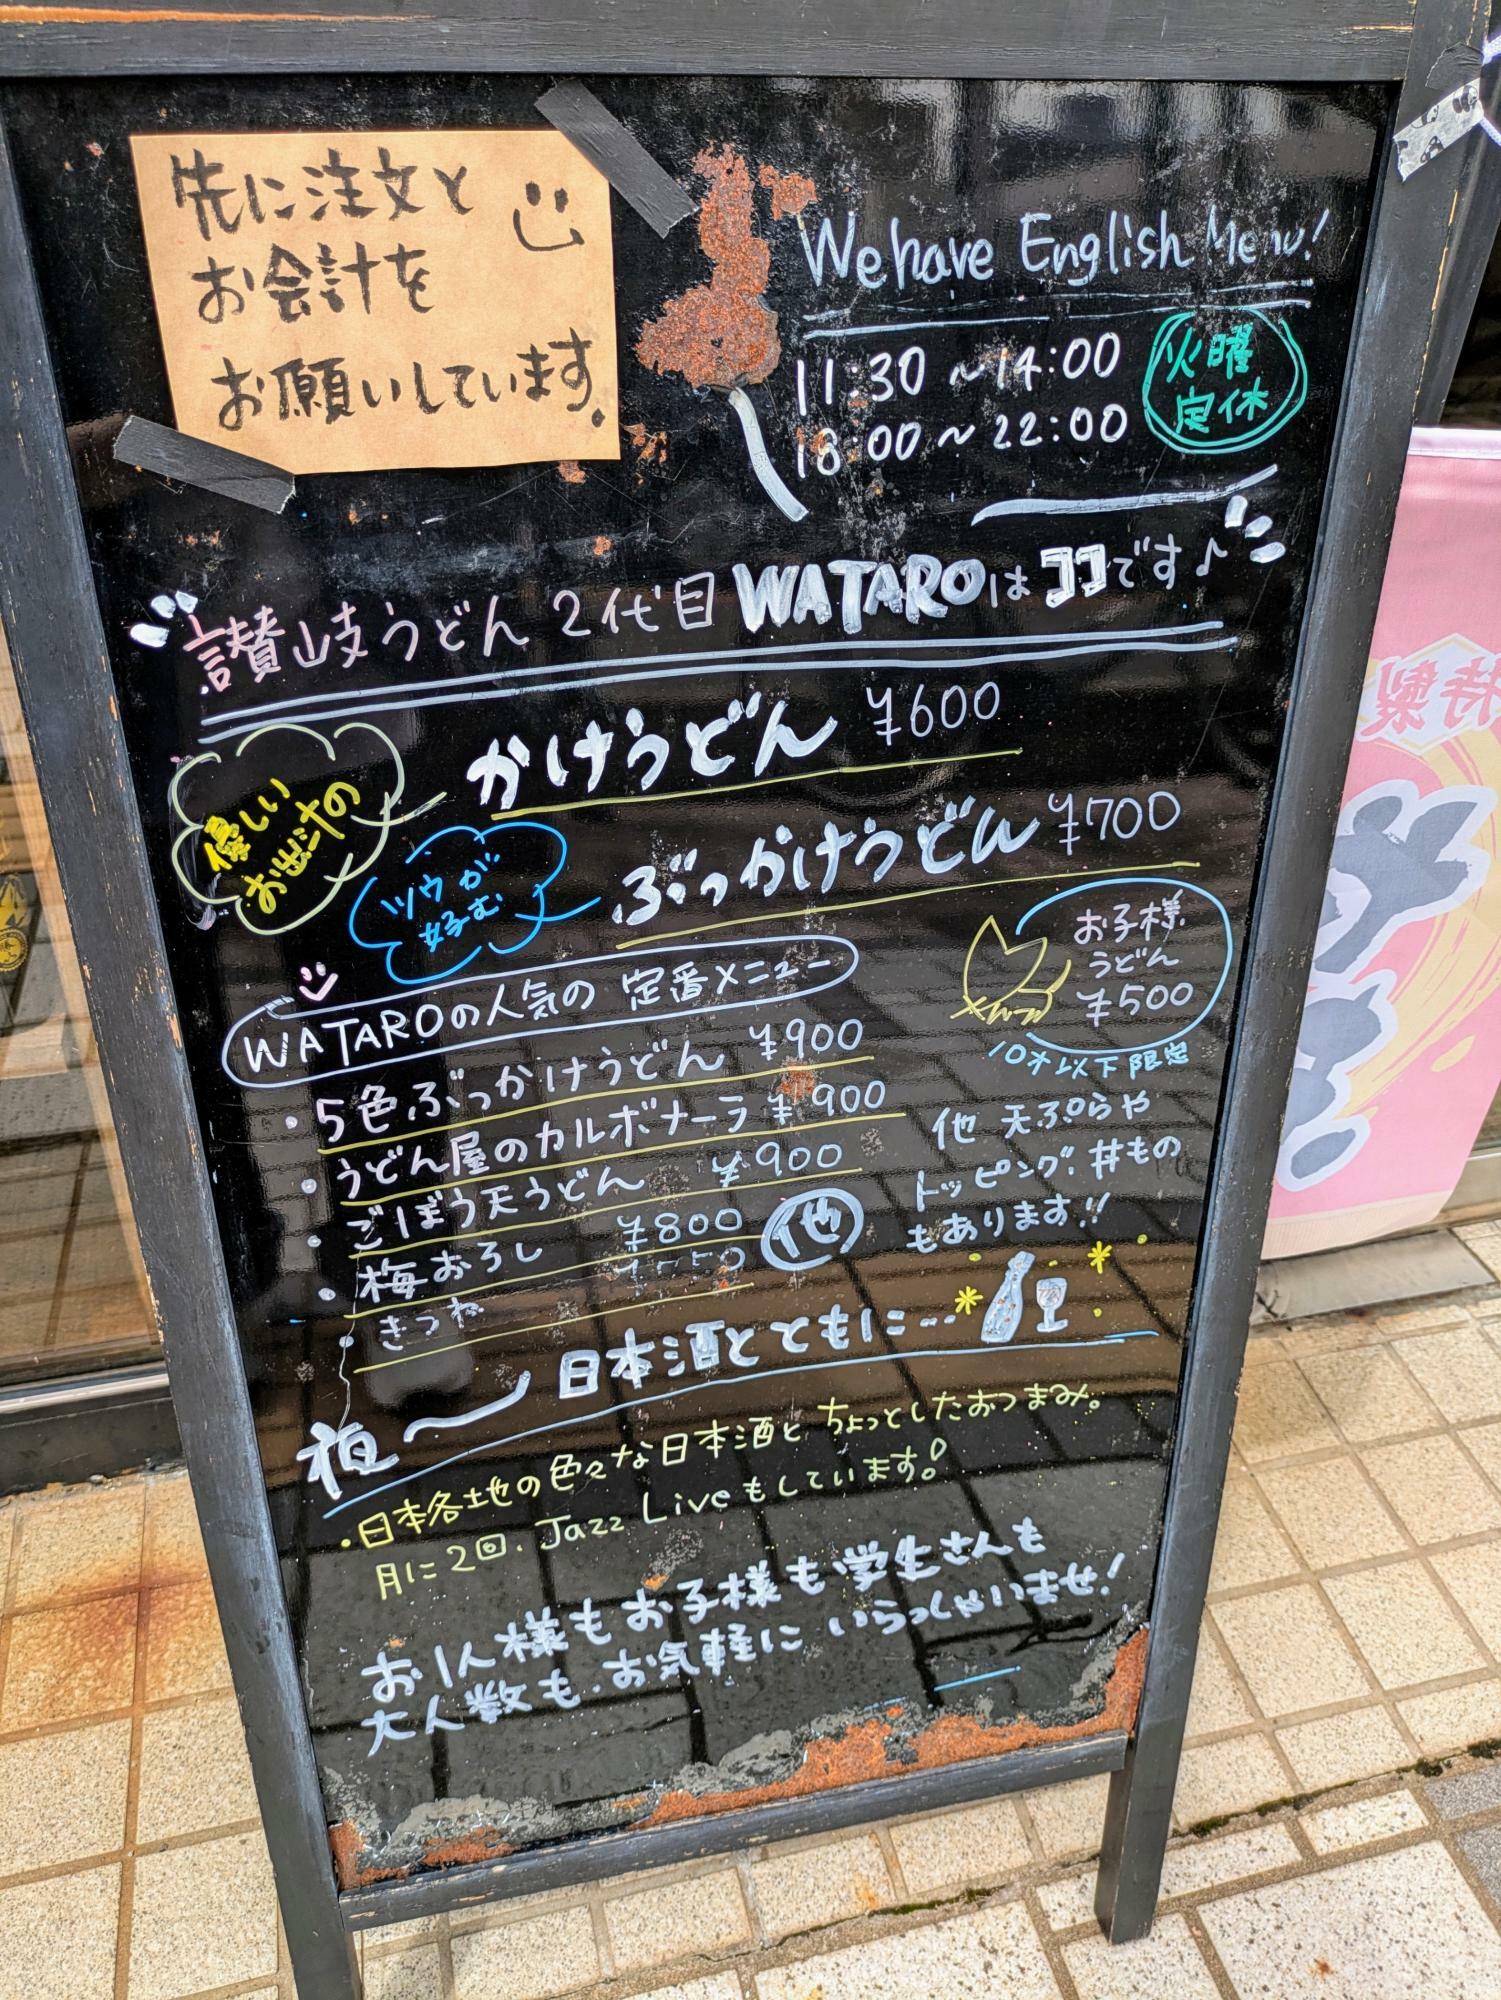 先に注文と
お会計を
お願いしています。
We have English Menu!
11:30 ~ 14:00
18:00 ~ 22:00
火曜
定休
讃岐うどん 2代目 WATAROはココです♪
優しい
お出汁の
かけうどん ¥600
ツウが
好む
ぶっかけうどん ¥700
お子様
うどん
¥500
10才以下限定
WATAROの人気の 定番メニュー
・5色ぶっかけうどん ¥900
・うどん屋のカルボナーラ ¥900
・ごぼう天うどん ¥900
・梅おろし ¥800
きつね
他
他 天ぷらや
トッピング、丼もの
もあります!!
夜〜 日本酒とともに…
・日本各地の色々な日本酒と ちょっとしたおつまみ。
月に2回、Jazz Liveもしています!
お1人様もお子様も学生さんも
大人数も、お気軽に いらっしゃいませ!
特製